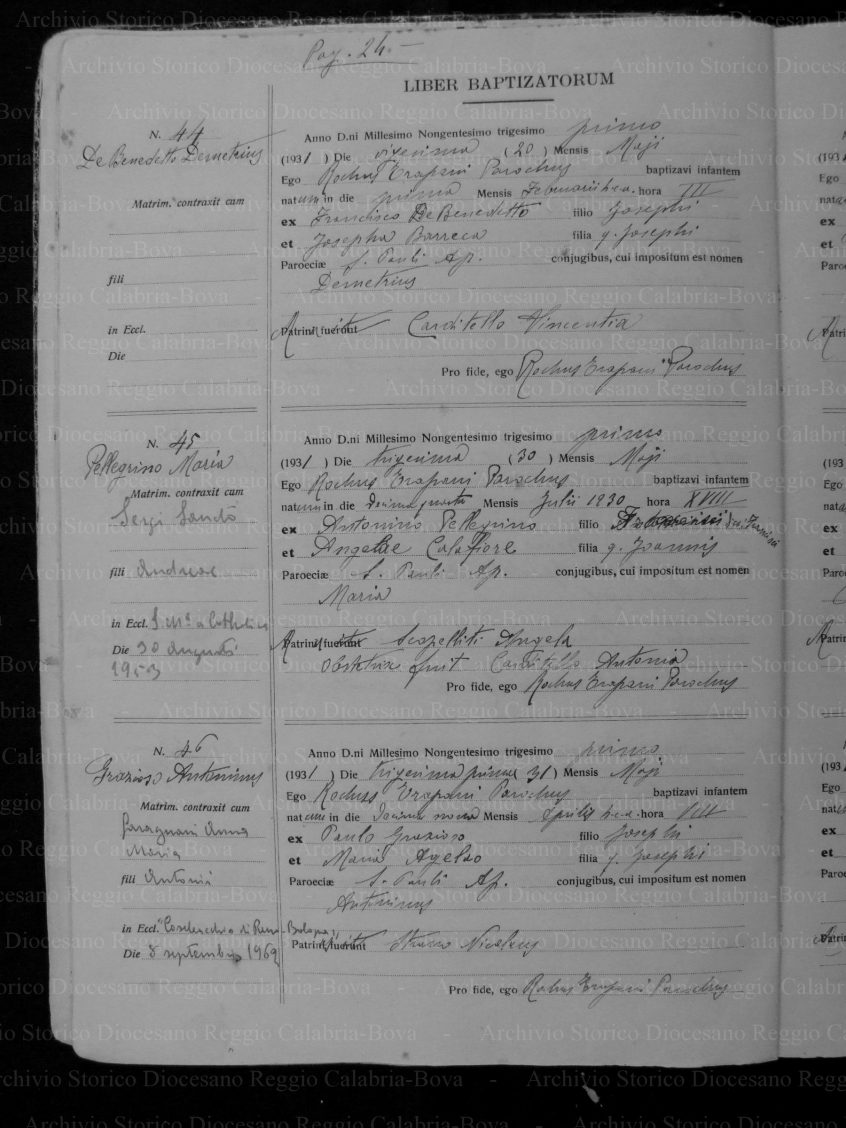 Pag. 24.
LIBER BAPTIZATORUM
N. 44
De Benedetto Demetrius
Matrim. contraxit cum
fili
in Eccl.
Die
Anno D.ni Millesimo Nongentesimo trigesimo primo
(1931) Die vigesima (20) Mensis Maji
Ego Rochus Trapani Parochus baptizavi infantem
natum in die prima Mensis Februarii h.a. hora III
ex Francisco De Benedetto filio Josephi
et Josepha Barreca filia q. Josephi
Paroeciæ S. Pauli Ap. conjugibus, cui impositum est nomen
Demetrius
Patrini fuerunt Carditello Vincentia
Pro fide, ego Rochus Trapani Parochus
N. 45
Pellegrino Maria
Matrim. contraxit cum
Sergi Santo
fili Andreae
in Eccl. S. M. a Catholica
Die 30 Augusti
1953
Anno D.ni Millesimo Nongentesimo trigesimo primo
(1931) Die trigesima (30) Mensis Maji
Ego Rochus Trapani Parochus baptizavi infantem
natum in die decima quarta Mensis Julii 1930 hora XVIII
ex Antonino Pellegrino filio
et Angelae Calafiore filia q. Joannis
Paroeciæ S. Pauli Ap. conjugibus, cui impositum est nomen
Maria
Patrini fuerunt Scopelliti Angela
Obstetrix fuit Carditello Antonia
Pro fide, ego Rochus Trapani Parochus
N. 46
Grazioso Antoninus
Matrim. contraxit cum
Anna
Maria
fili Antonii
in Eccl. di Reno-Bologna
Die 8 septembris 1962
Anno D.ni Millesimo Nongentesimo trigesimo primo
(1931) Die trigesima prima 31) Mensis Maji
Ego Rochus Trapani Parochus baptizavi infantem
natum in die decima nona Mensis Aprilis h.a. hora VIII
ex Paulo Grazioso filio Josephi
et Maria filia q. Josephi
Paroeciæ S. Pauli Ap. conjugibus, cui impositum est nomen
Antoninus
Patrini fuerunt Nicolaus
Pro fide, ego Rochus Trapani Parochus
Archivio Storico Diocesano Reggio Calabria-Bova